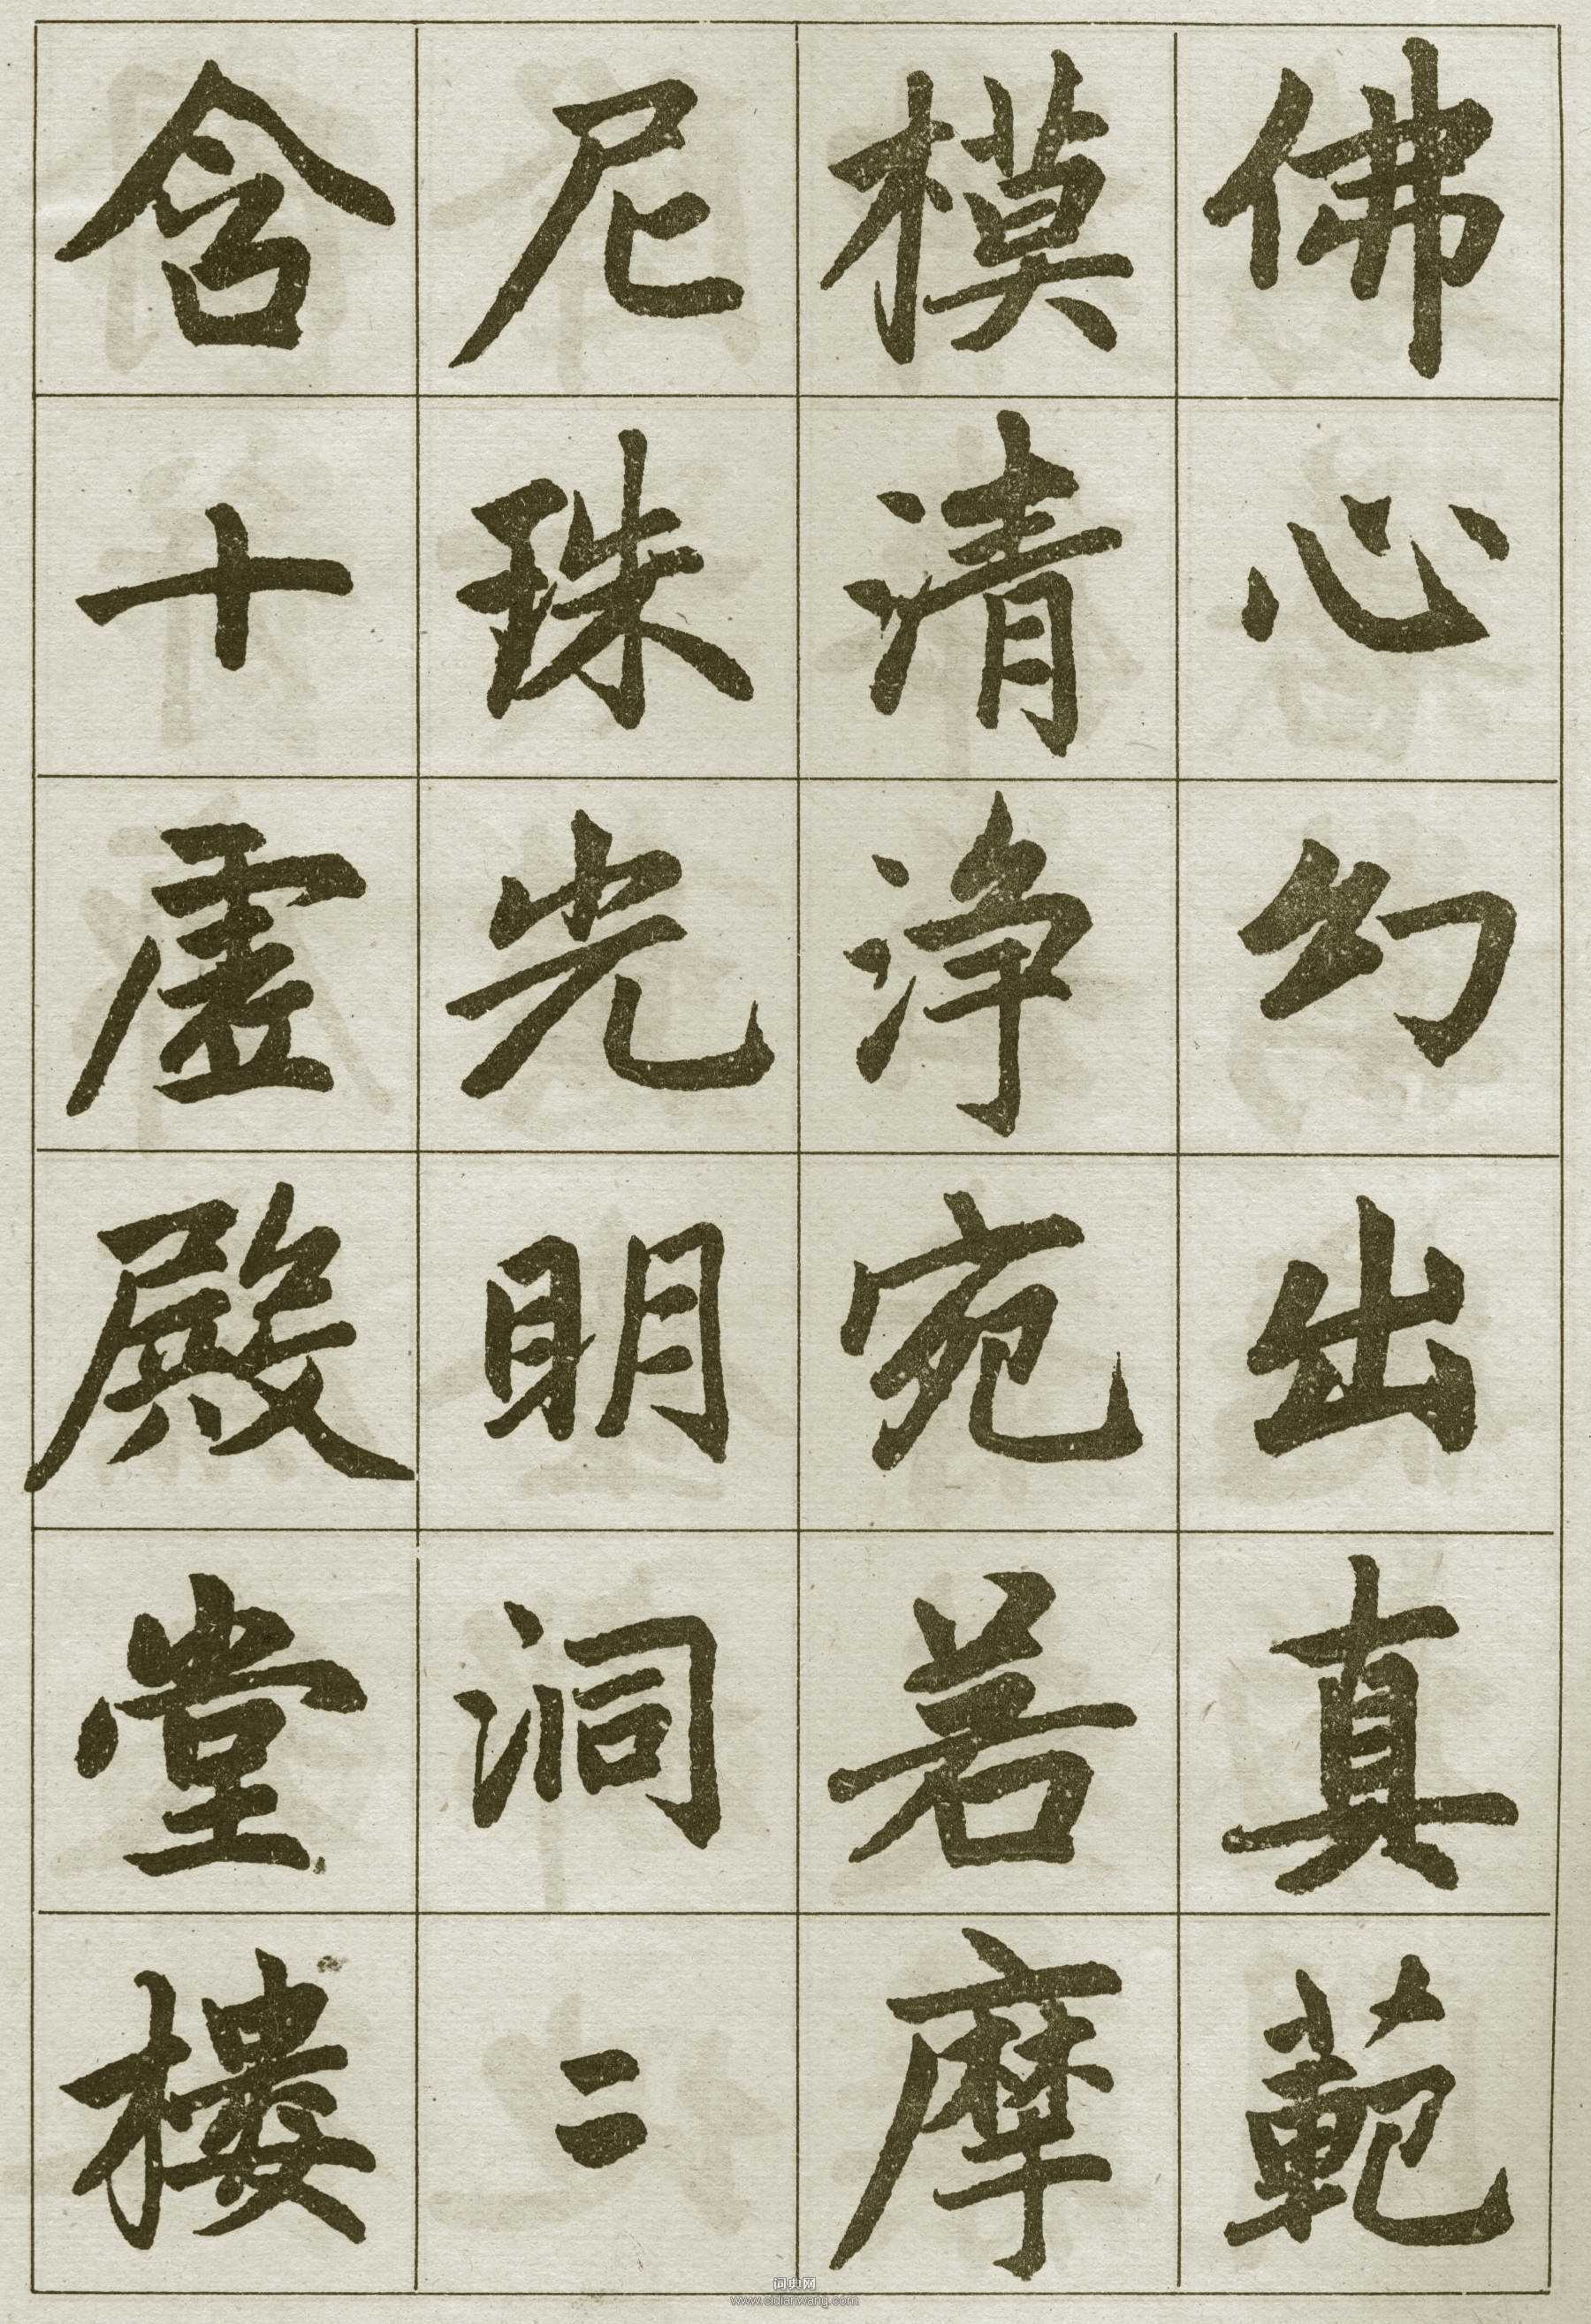 佛心幻出真範
模清浄宛若摩
尼珠光明洞〻
含十虚殿堂樓
词典网
www.cidianwang.com